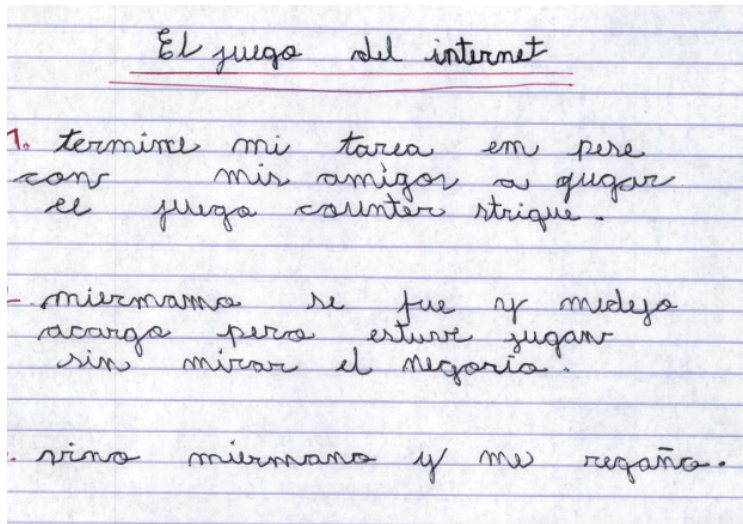 El juego del internet
1. termine mi tarea em pese
con mis amigos a gugar
el juego counter strique.
miermamo se fue y medejo
acargo pero estuve jugan
sin mirar el negosio.
vino miermano y me regaño.